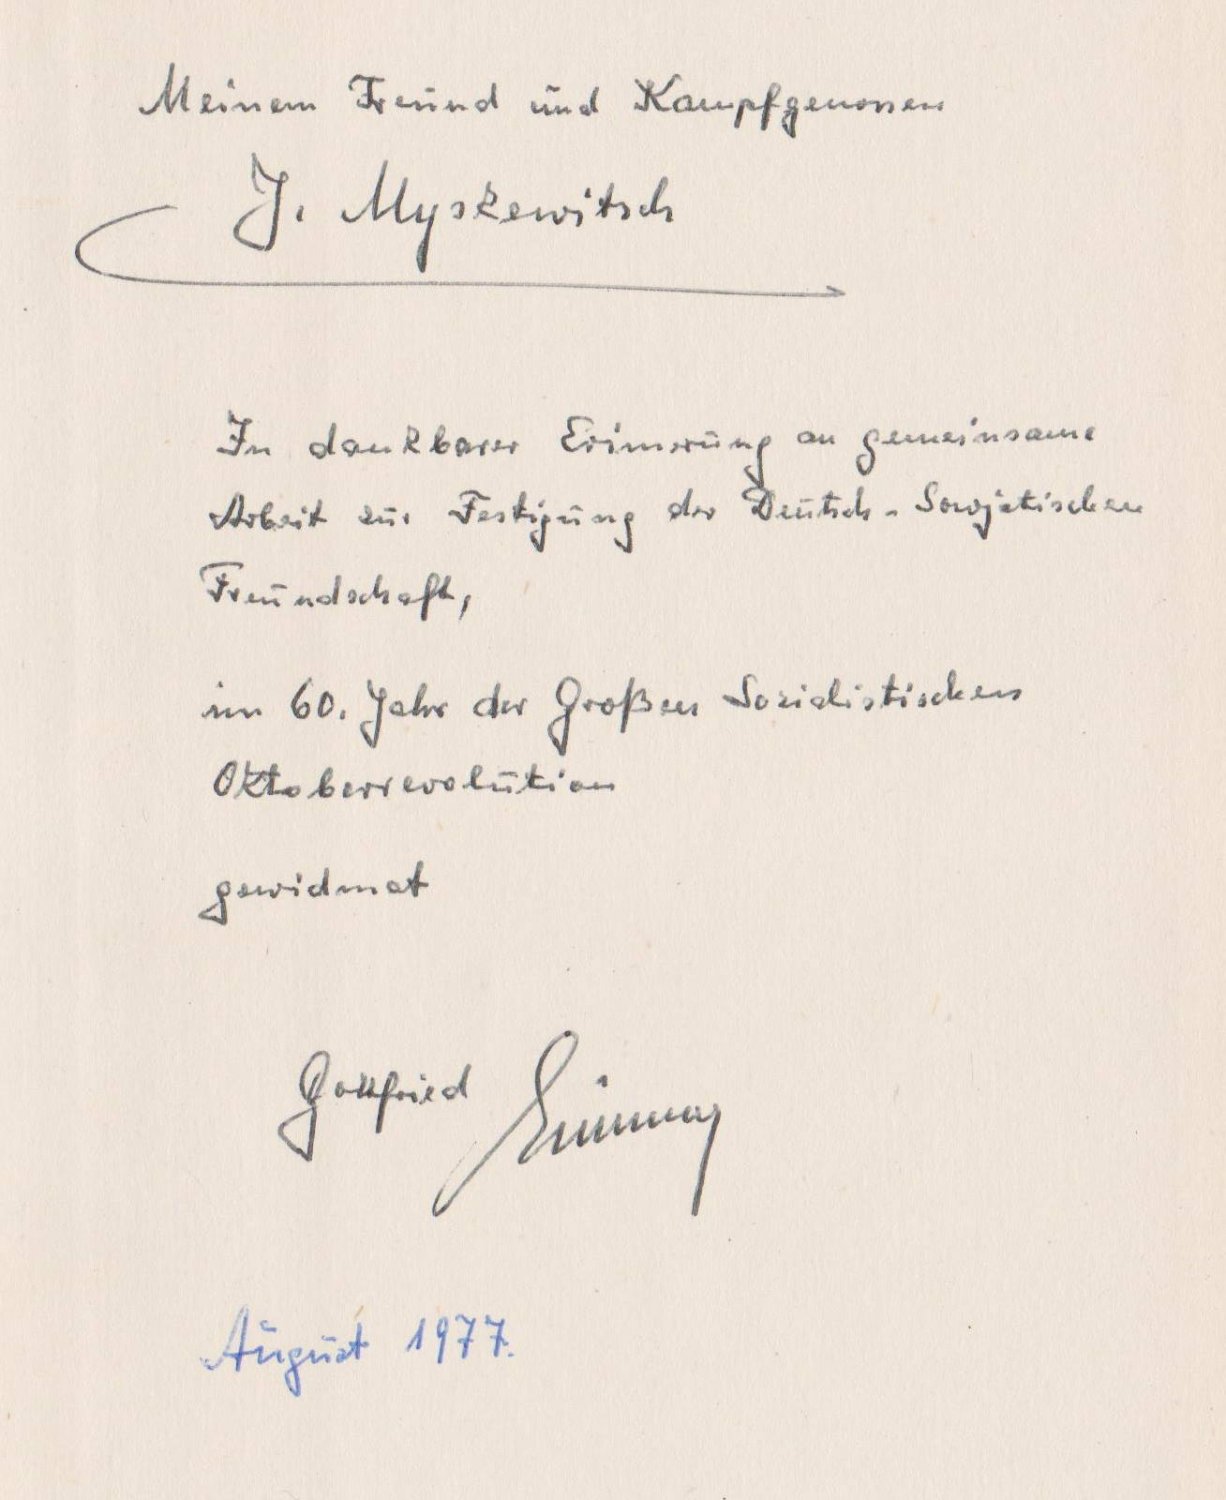 Meinem Freund und Kampfgenossen
J. Myskewitsch
In dankbarer Erinnerung an gemeinsame
Arbeit zur Festigung der Deutsch-Sowjetischen
Freundschaft,
im 60. Jahr der Großen Sozialistischen
Oktoberrevolution
gewidmet
Gottfried
August 1977.